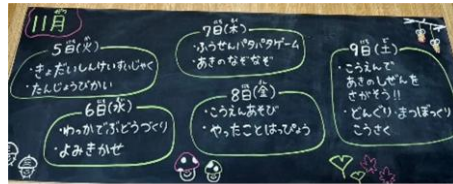 11月
5日(火)
・きょだいしんけいすいじゃく
・たんじょうびかい
6日(水)
・わっかでぶどうづくり
・よみきかせ
7日(木)
・ふうせんパタパタゲーム
・あきのなぞなぞ
8日(金)
・こうえんあそび
・やったことはっぴょう
9日(土)
・こうえんで
あきのしぜんを
さがそう!!
・どんぐり・まつぼっくり
こうさく